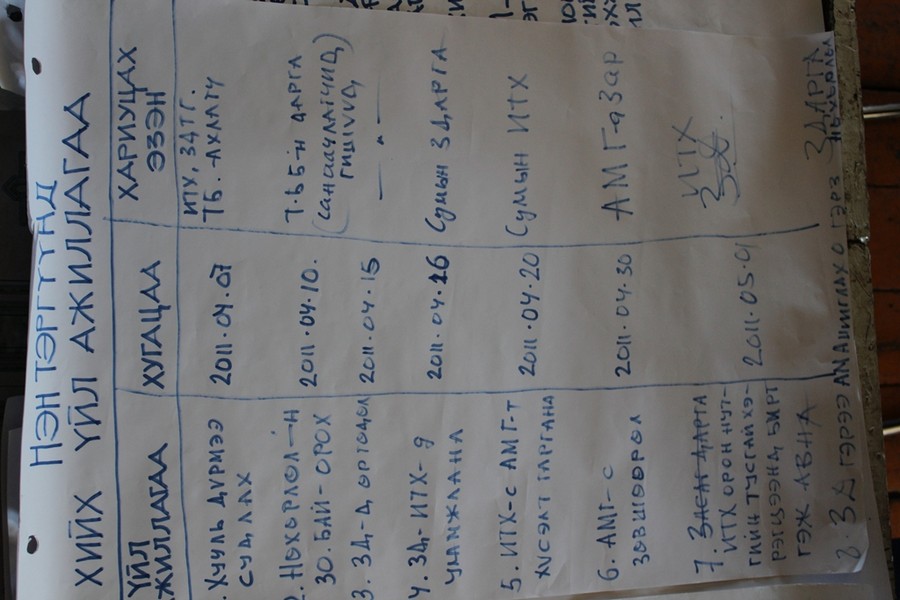 НЭН ТЭРГҮҮНД
ХИЙХ ҮЙЛ АЖИЛЛАГАА
ҮЙЛ АЖИЛЛАГАА
ХУГАЦАА
ХАРИУЦАХ ЭЗЭН
1. ХУУЛЬ ДҮРМЭЭ
СУДЛАХ
2011.04.07
ИТХ, ЗДТГ.
ТБ. АХЛАГЧ
2. НӨХӨРЛӨЛ-ИЙН
ЗО. БАЙ-ОРОХ
2011.04.10.
Т.Б.Б-Н ДАРГА
(САНААЧЛАГЧИД)
ГИШҮҮД
3. ЗД-Д ӨРГӨДӨЛ
2011.04.15
— " —
4. ЗД-ИТХ-Д
УЛАМЖЛАНА
2011.04.16
СУМЫН ЗДАРГА
5. ИТХ-С АМГ-Т
ХҮСЭЛТ ГАРГАНА
2011.04.20
СУМЫН ИТХ
6. АМГ-С
ЗӨВШӨӨРӨЛ
2011.04.30
АМГ-АЗАР
7. ЗАСАГ ДАРГА
ИТХ ОРОН НУТ-
ГИЙН ТУСГАЙ ХЭ-
РЭГЦЭЭНД БҮРТ
ГЭЖ АВНА
2011.05.01
ИТХ
8. ЗД ГЭРЭЭ АМ АШИГЛАХ
ЗДАРГА